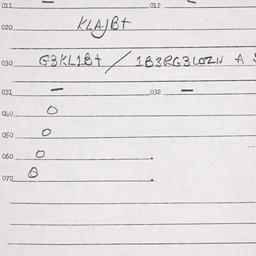 011 — 012 —
020 KLAJB+
030 G3KL1B+ / 1B3RG3LOZN A
031 — 032 —
040 O
050 O
060 O .
070 O .